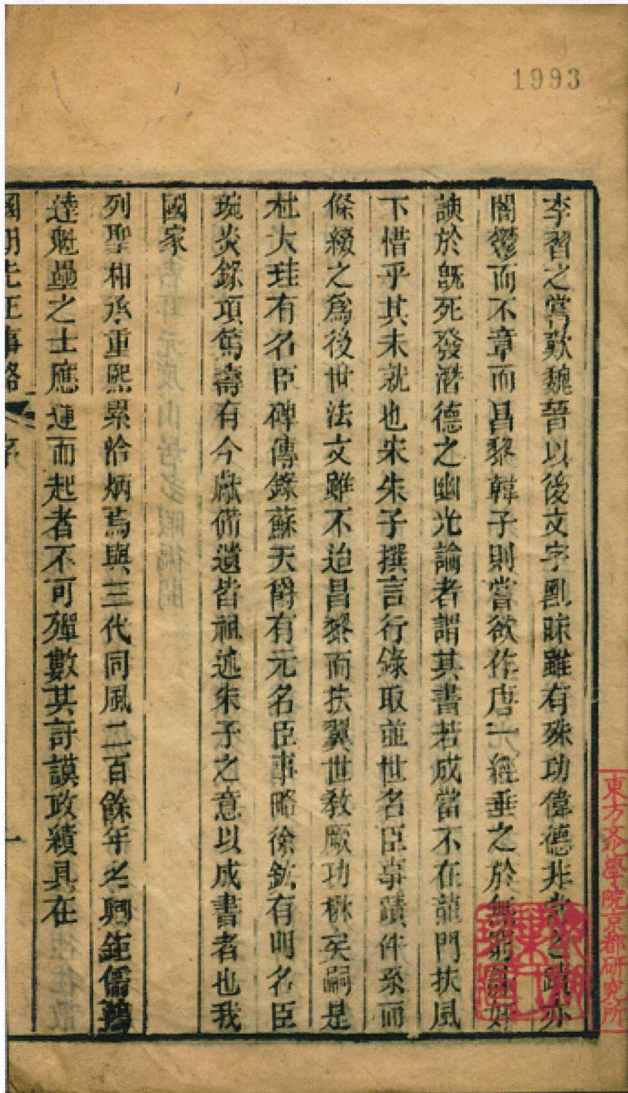 1993
李習之嘗歎魏晉以後文字昧雖有殊功偉德非常之蹟亦
闇鬱而不章而昌黎韓子則嘗欲作唐一經垂之於無窮誅奸
諛於旣死發潛德之幽光論者謂其書若成當不在龍門扶風
下惜乎其未就也宋朱子撰言行錄取並世名臣事蹟件系而
條綴之爲後世法文雖不迨昌黎而扶翼世敎厥功楙矣嗣是
杜大珪有名臣碑傳錄蘇天爵有元名臣事略徐紘有明名臣
琬炎錄項篤壽有今獻備遺皆祖述朱子之意以成書者也我
國家
列聖相承重熙累洽炳焉與三代同風二百餘年名卿鉅儒鴻
達魁壘之士應運而起者不可殫數其訏謨政績具在
國朝先正事略 序 一
東方文化學院京都研究所